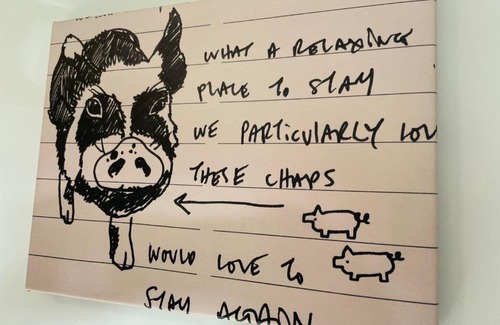 WHAT A RELAXING
PLACE TO STAY
WE PARTICULARLY LOV
THESE CHAPS
WOULD LOVE TO
STAY AGAIN